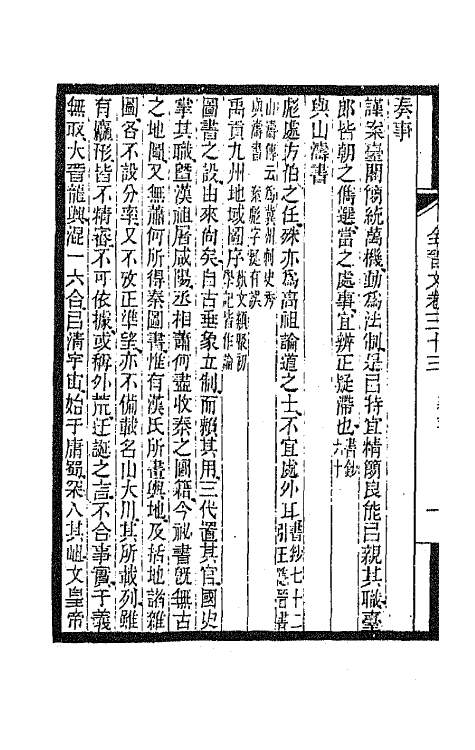 全晉文卷三十三
奏事
謹案臺閣簡統萬機動為法制是㠯特宜精簡良能㠯親其職臺
郎皆朝之儁選當之處事宜辨正疑滯也書鈔六十
與山濤書
彪處方伯之任殊亦為高祖論道之士不宜處外耳書鈔七十二引王隱晉書
山濤傳云為冀州刺史秀與濤書案彪字疑有誤
禹貢九州地域圖序藝文類聚初學記皆作論
圖書之設由來尚矣自古垂象立制而賴其用三代置其官國史
掌其職暨漢祖屠咸陽丞相蕭何盡收秦之圖籍今祕書旣無古
之地圖又無蕭何所得秦圖書惟有漢氏所畫輿地及括地諸雜
圖各不設分率又不攷正準望亦不備載名山大川其所載列雖
有麤形皆不精審不可依據或稱外荒迂誕之言不合事實于義
無取大晉龍興混一六合㠯清宇宙始于庸蜀罙入其岨文皇帝